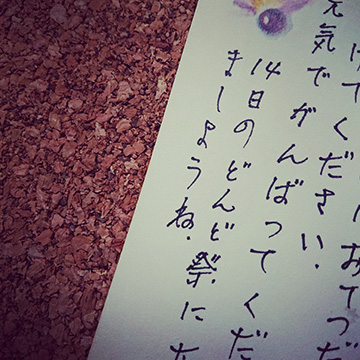 おてつだ
けてください.
元気でがんばってくだ
14日のどんど祭にた
ましようね.